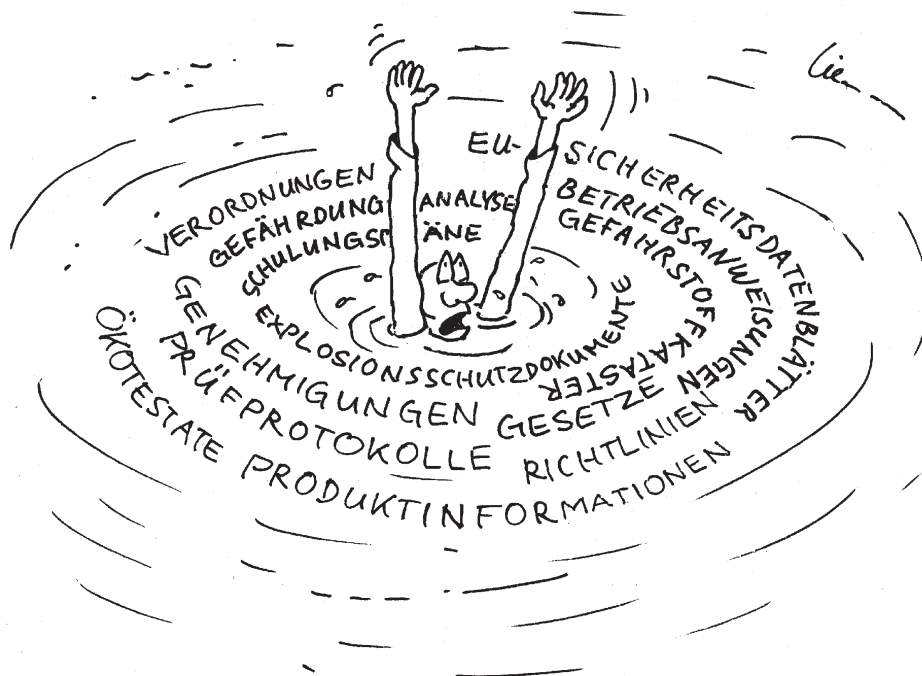 VERORDNUNGEN
GEFÄHRDUNG ANALYSE
SCHULUNGSP ÄNE
EU-SICHERHEITSDATENBLÄTTER
BETRIEBSANWEISUNGEN
GEFAHRSTOFFKATASTER
EXPLOSIONSSCHUTZDOKUMENTE
GENEHMIGUNGEN GESETZE
PRÜFPROTOKOLLE RICHTLINIEN
ÖKOTESTATE PRODUKTINFORMATIONEN